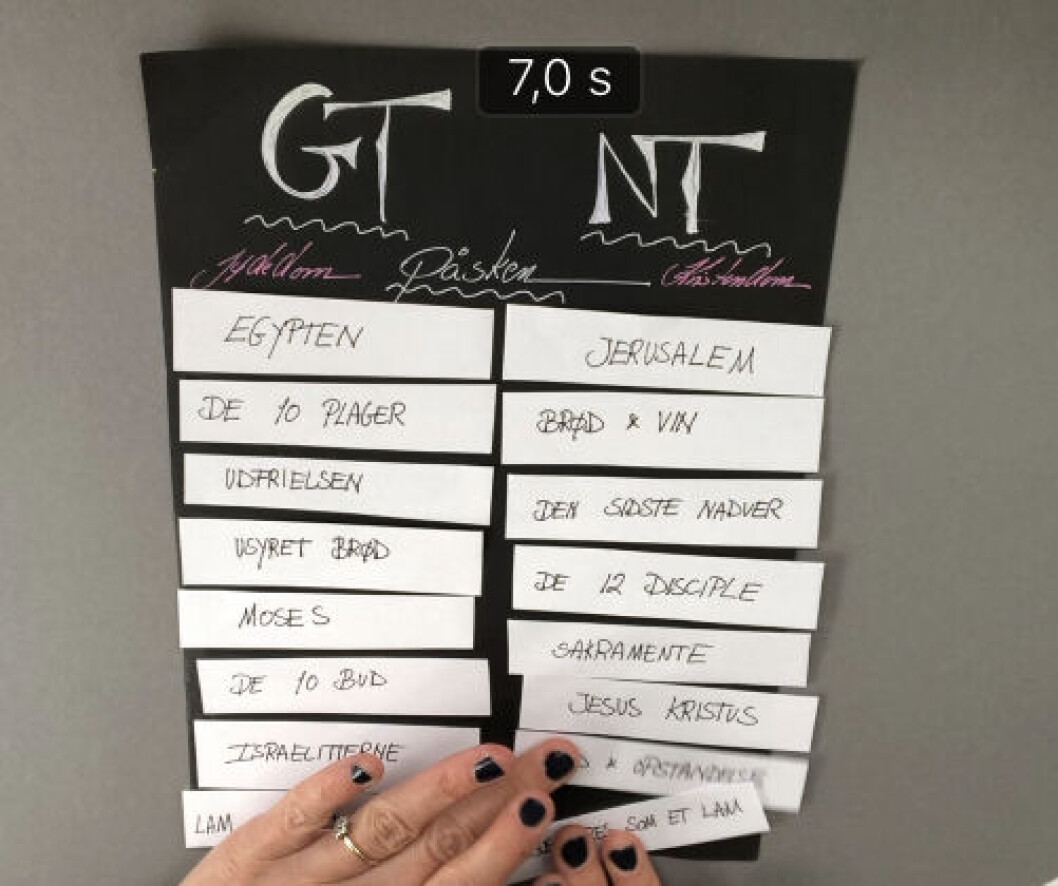 7,0 s
GT
NT
Jødedom
Påsken
Kristendom
EGYPTEN
DE 10 PLAGER
UDFRIELSEN
USYRET BRØD
MOSES
DE 10 BUD
ISRAELITTERNE
LAM
JERUSALEM
BRØD & VIN
DEN SIDSTE NADVER
DE 12 DISCIPLE
SAKRAMENTE
JESUS KRISTUS
& OPSTANDELSE
SOM ET LAM